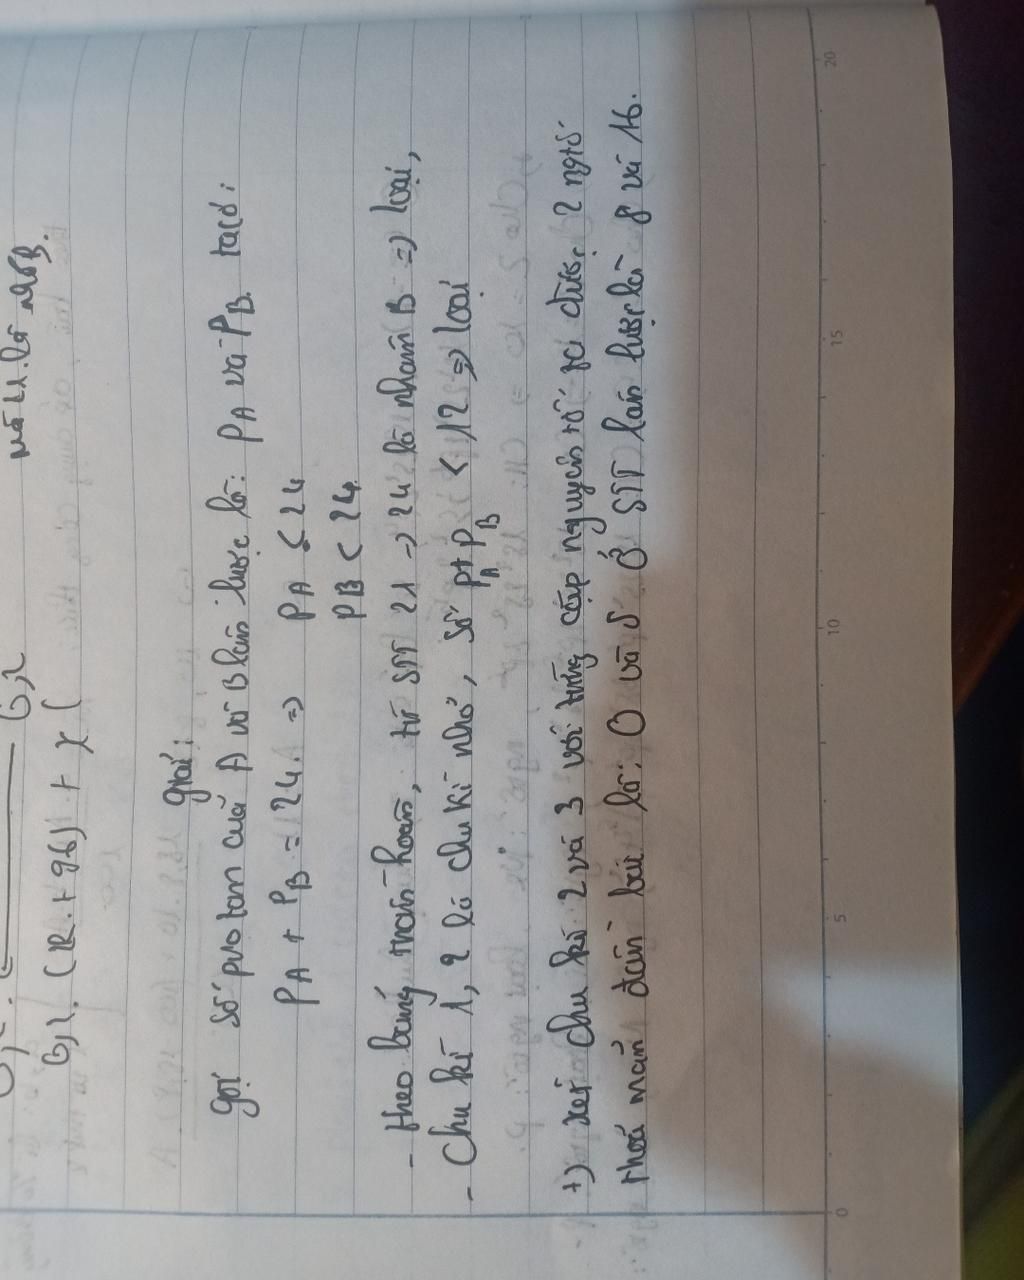 mẫu là
6,2
6,2. (R.+96) + x (
giải:
gọi số proton của A và B lần lượt là: PA và PB. ta có:
PA + PB = 24. => PA < 24
PB < 24
- theo bảng tuần hoàn, từ STT 21 -> 24 là nhóm B => loại,
- Chu kì 1, 2 là chu kì nhỏ, số PA+PB < 12 => loại
+) xét chu kì 2 và 3 với từng cặp nguyên tố ta được 2 ngtố
thoả mãn đầu bài là: O và S Ở STT lần lượt là 8 và 16.
0 5 10 15 20